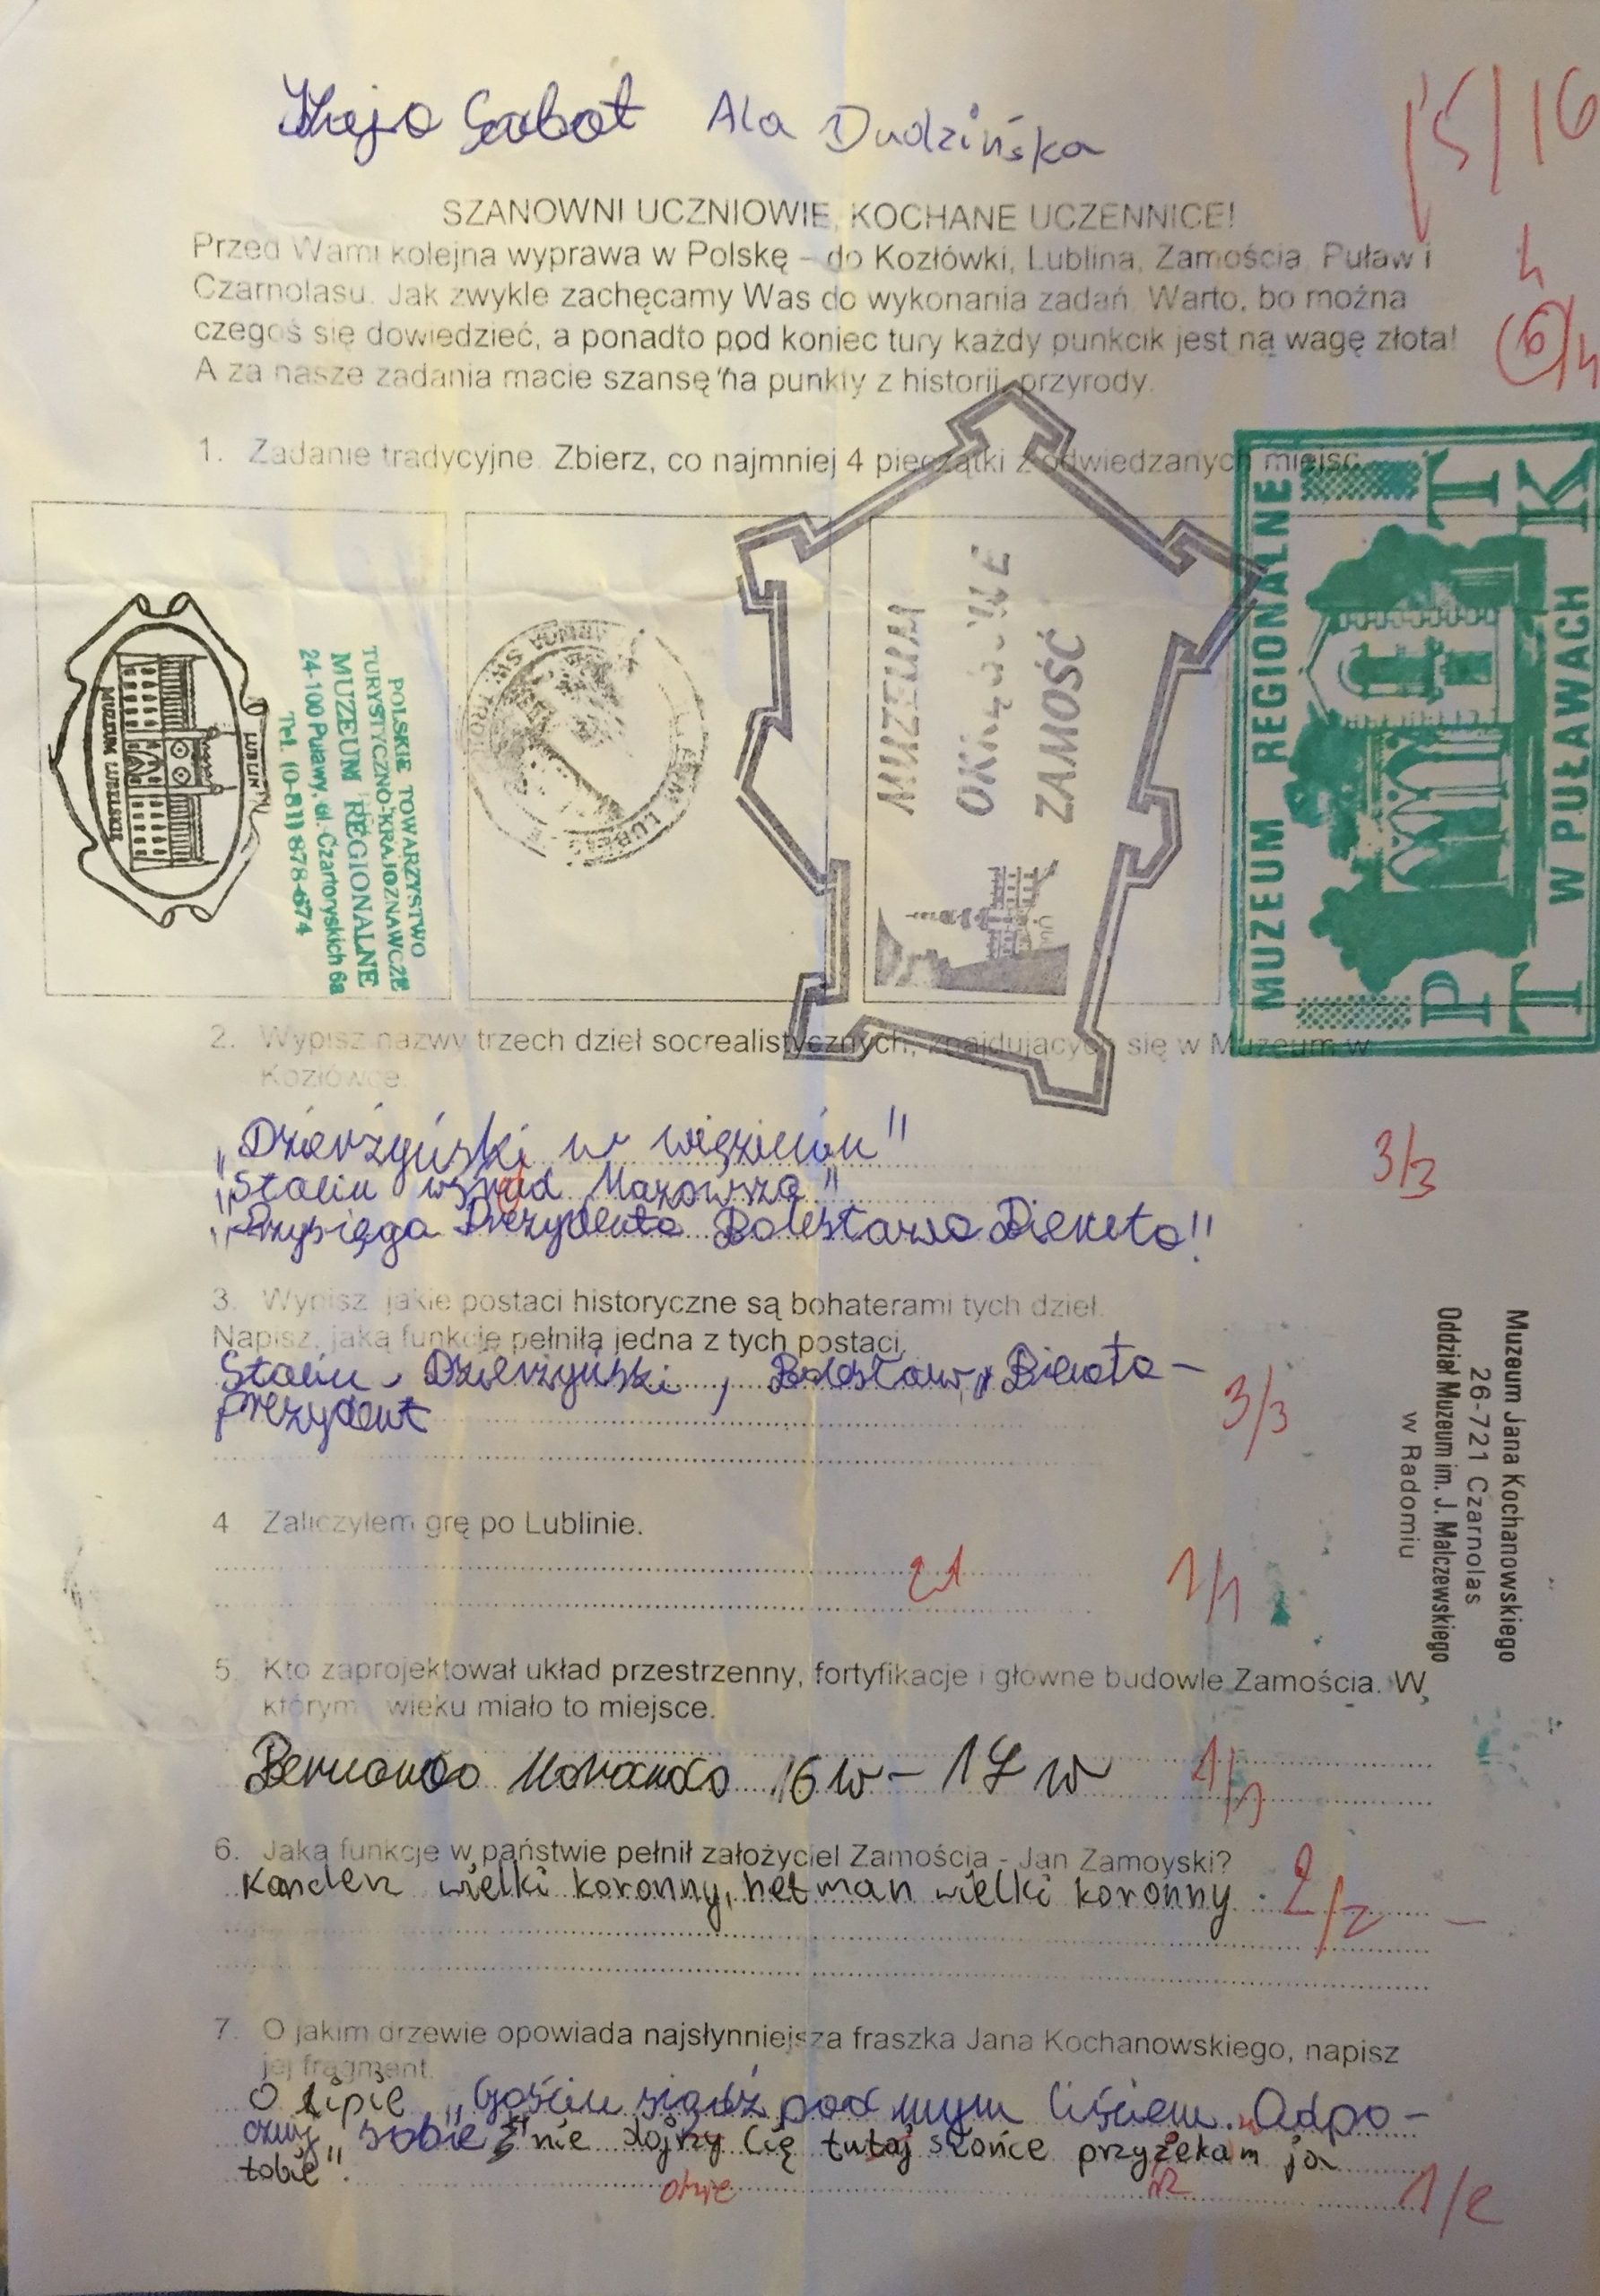 Ala Dudzińska
15/16
SZANOWNI UCZNIOWIE, KOCHANE UCZENNICE!
Przed Wami kolejna wyprawa w Polskę – do Kozłówki, Lublina, Zamościa, Puław i
Czarnolasu. Jak zwykle zachęcamy Was do wykonania zadań. Warto, bo można
czegoś się dowiedzieć, a ponadto pod koniec tury każdy punkcik jest na wagę złota!
A za nasze zadania macie szansę na punkty z historii, przyrody.
1. Zadanie tradycyjne. Zbierz, co najmniej 4 pieczątki z odwiedzanych miejsc.
LUBLIN
MUZEUM LUBELSKIE
POLSKIE TOWARZYSTWO
TURYSTYCZNO-KRAJOZNAWCZE
MUZEUM REGIONALNE
24-100 Puławy, ul. Czartoryskich 6a
Tel. (0-81) 878-674
MUZEUM
ZAMOŚĆ
MUZEUM REGIONALNE
P T T K
W PUŁAWACH
2. Wypisz nazwy trzech dzieł socrealistycznych, znajdujących się w Muzeum w
Kozłówce.
„Dzierżyński w więzieniu"
„Stalin wśród Mazowsza"
„Przysięga Prezydenta Bolesława Bieruta"
3/3
3. Wypisz, jakie postaci historyczne są bohaterami tych dzieł.
Napisz, jaką funkcję pełniła jedna z tych postaci.
Stalin, Dzierżyński, Bolesław Bieruta –
prezydent
3/3
Muzeum Jana Kochanowskiego
26-721 Czarnolas
Oddział Muzeum im. J. Malczewskiego
w Radomiu
4 Zaliczyłem grę po Lublinie.
1/1
5. Kto zaprojektował układ przestrzenny, fortyfikacje i główne budowle Zamościa. W
którym wieku miało to miejsce.
Bernando Morando 16 w – 17 w
1/1
6. Jaką funkcje w państwie pełnił założyciel Zamościa - Jan Zamoyski?
Kanclerz wielki koronny, hetman wielki koronny.
2/2
7. O jakim drzewie opowiada najsłynniejsza fraszka Jana Kochanowskiego, napisz
jej fragment.
O lipie „Gościu siądź pod mym liściem. Odpo-
cznij sobie nie dojrzy Cię tutaj słońce przyżekam ja
tobie".
rz
1/2